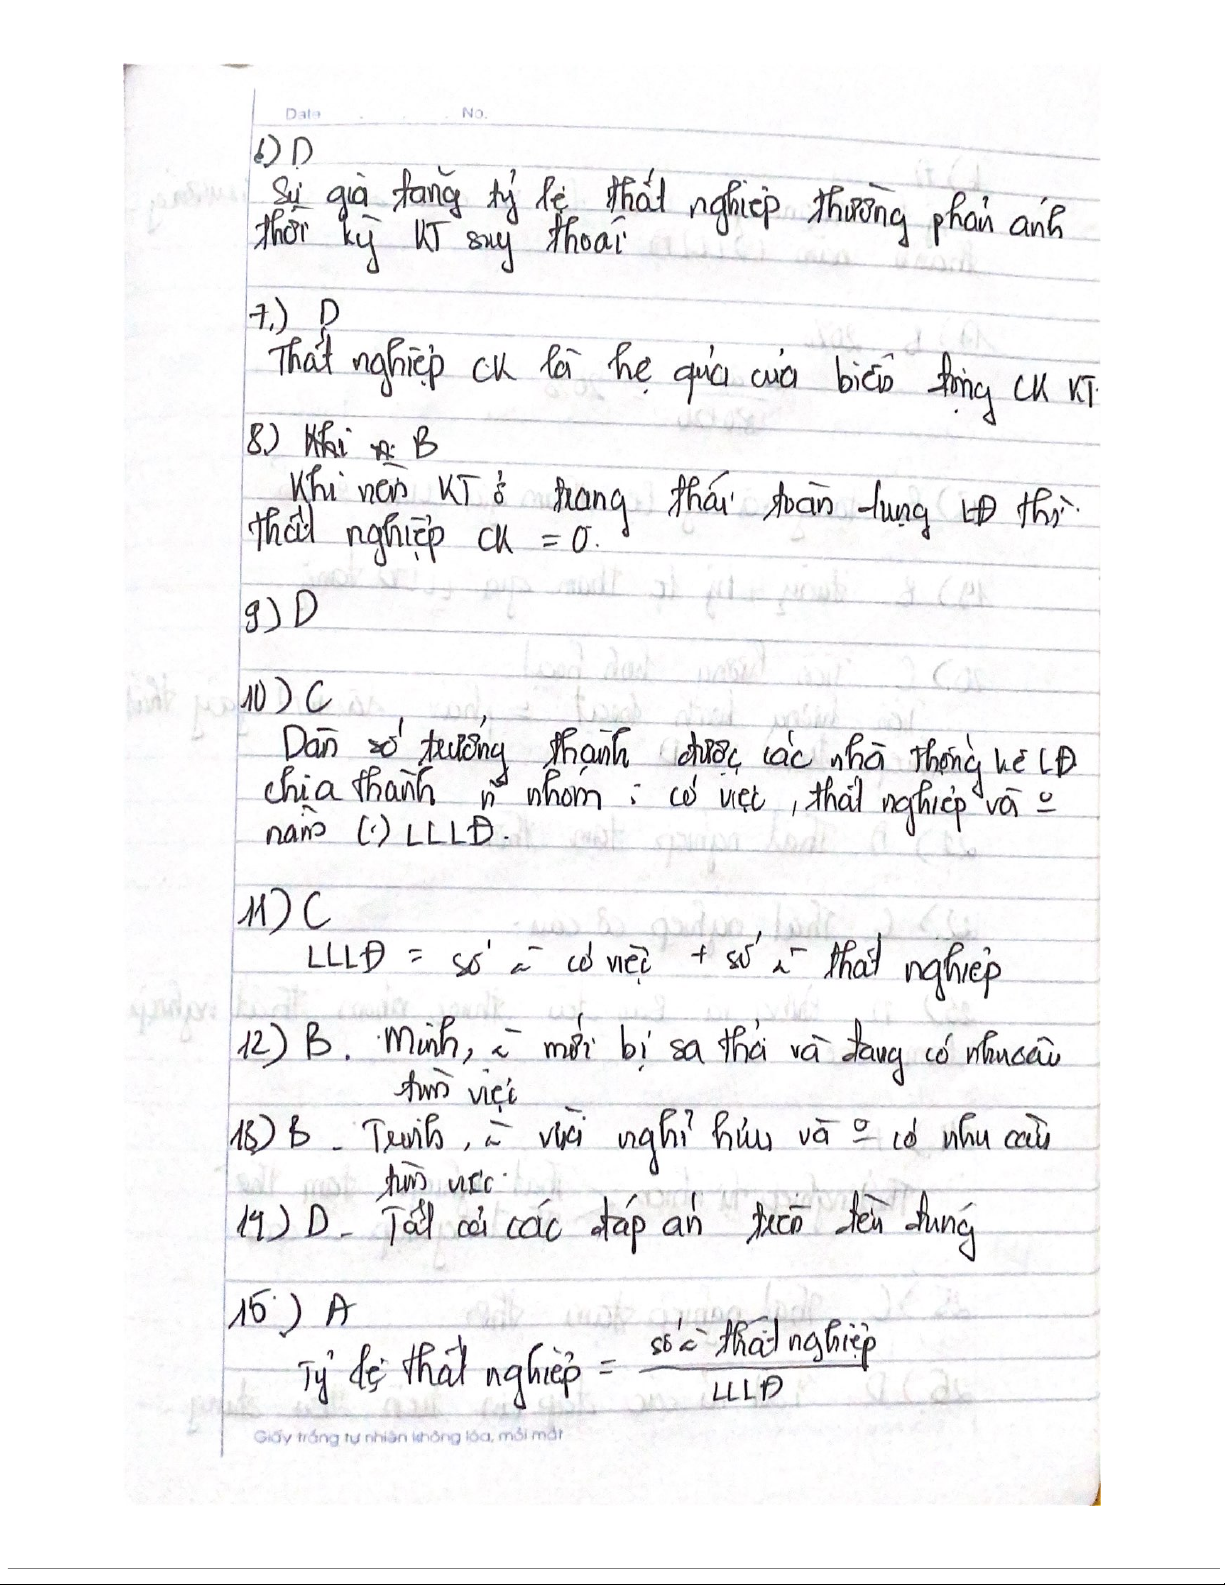 Date No.
6) D
Sự gia tăng tỷ lệ thất nghiệp thường phản ánh
thời kỳ KT suy thoái
7.) D
Thất nghiệp CK là hệ quả của biến động CK KT.
8.) Khi B
Khi nền KT ở trạng thái toàn dụng LĐ thì
thất nghiệp CK = 0.
9) D
10) C
Dân số trưởng thành được các nhà thống kê LĐ
chia thành nhóm : có việc, thất nghiệp và o
nằm (.) LLLĐ.
11) C
LLLĐ = số có việc + số thất nghiệp
12) B. Minh, mới bị sa thải và đang có nhu cầu
tìm việc
13) B - Trinh, vừa nghỉ hưu và o có nhu cầu
tìm việc.
14) D - Tất cả các đáp án trên đều đúng
15.) A
Tỷ lệ thất nghiệp = số thất nghiệp
LLLĐ
Giấy trắng tự nhiên không lóa, mỏi mắt